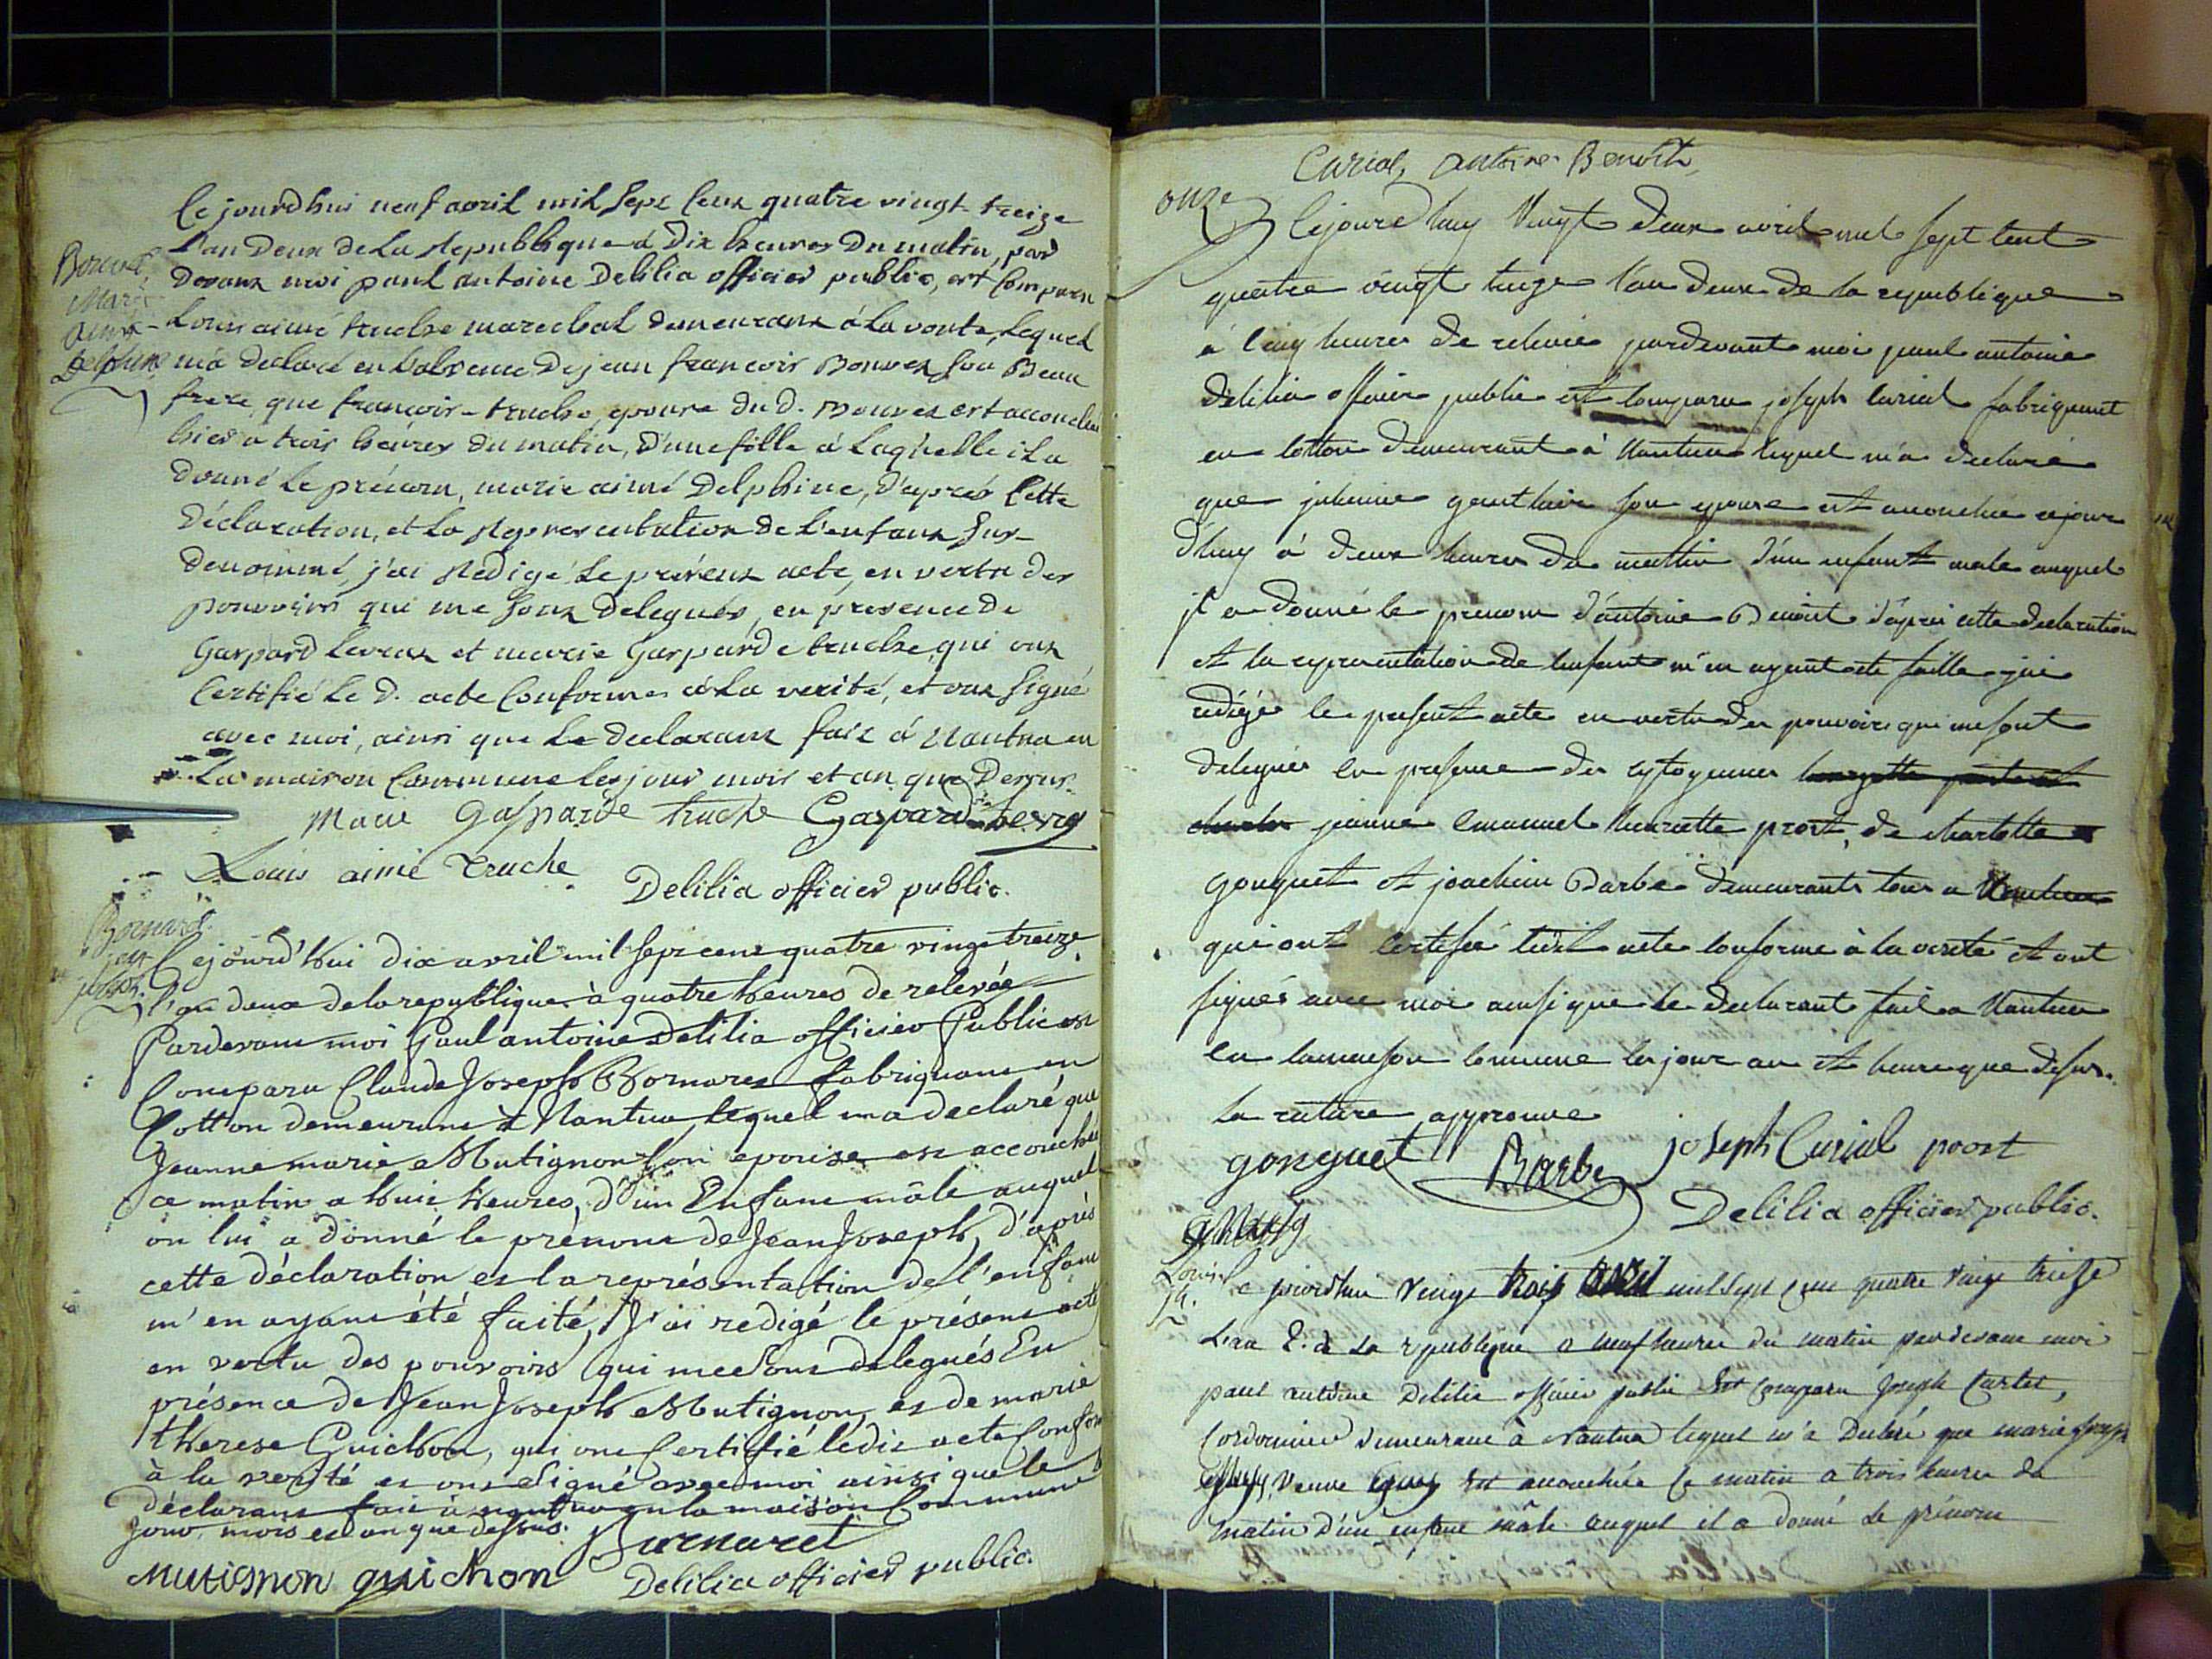 Ce jourd'hui neuf avril mil sept cent quatre vingt treize
L'an Deux de La Republique à Dix heures Du matin, par
Devant moi paul antoine Delilia officier public, est comparu
Louis aimé truche marechal demeurant à La voute, Lequel
m'a declaré en L'absence De jean francois Bouvet son Beau
frere, que francoise truche epouse du d. Bouvet est accouchée
hier a trois heures du matin, d'une fille à Laquelle il a
donné Le prénom, marie aimé Delphine, d'après Cette
Déclaration, et La Representation de L'enfant sus-
denommé, j'ai Redigé Le présent acte, en vertu des
pouvoirs qui me sont Delegués, en presence de
Gaspard Levrat et marie Gasparde truche, qui ont
Certifié Le d. acte Conforme à La verité, et ont signé
avec moi, ainsi que Le declarant fait à Nantua en
La maison Commune Les jour mois et an que Dessus.
Marie Gasparde truche Gaspard Levra
Louis aimé Truche
Delilia officier public.
Bouvet
Marie
aimé
Delphine
Bornaret
jean
joseph.
Cejourd'hui dix avril mil sept cent quatre vingt treize
l'an deux de la republique à quatre heures de relevée
Pardevant moi Paul antoine Delilia officier Public est
Comparu Claude Joseph Bornaret fabriquant en
Cotton demeurant à Nantua, lequel m'a declaré que
Jeanne marie Mutignon son epouse est accouchée
ce matin a huit heures, d'un Enfant mâle auquel
on lui a donné le prénom de Jean Joseph, d'après
cette déclaration et la représentation de l'enfant
m'en ayant été faité, J'ai redigé le présent acte
en vertu des pouvoirs qui me sont delegués En
présence de Jean Joseph Mutignon, et de marie
therese Guichon, qui ont Certifié ledit acte Confor
à la verité et ont Signé avec moi ainsi que le
déclarant fait à nantua en la maison Commune
jour mois et an que dessus. Bornaret
Mutignon guichon Delilia officier public.
Curial, antoine Benoit
onze
Cejourd'huy Vingt deux avril mil sept cent
quatre vingt treize l'an deux de la republique
à cinq heures de relevée pardevant moi paul antoine
Delilia officier public est comparu joseph Curial fabriquant
en cotton demeurant à Nantua lequel m'a declaré
que son epouse est accouchée cejour
d'huy à deux heures du mattin d'un enfant male auquel
il a donné le prenom d'antoine Benoit d'après cette declaration
et la representation de l'enfant m'en ayant ete faitte j'ai
rédigé le present acte en vertu des pouvoirs qui me sont
delegués en presence des cytoyennes
jeanne emanuel henriette prost, de charlotte
gonguet et joachim Barbe demeurants tous a Nantua
qui ont certifié ledit acte conforme à la verité et ont
signés avec moi ainsi que le declarant fait a Nantua
en la maison commune les jour an et heure que dessus.
la rature approuvé
gonguet Barbe joseph Curial prost
Delilia officier public.
Louis
Ce jourd'hui Vingt trois avril mil sept cent quatre vingt treise
L'an 2. de la republique a neuf heures du matin pardevant moi
paul antoine Delilia officier public Est comparu Joseph Cartet,
Cordonnier demeurant à Nantua lequel m'a Declaré que marie
veuve Est accouchée Ce matin a trois heures du
matin d'un enfant mâle auquel il a donné le prénom